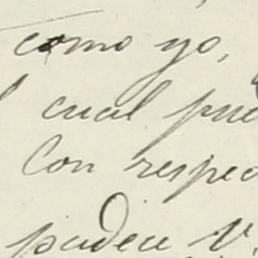 como yo,
cual pue
Con respec
padece V.